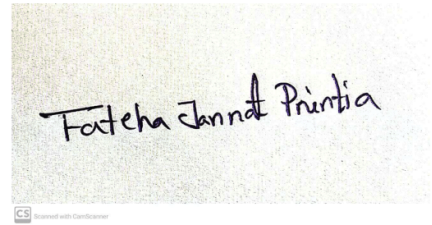 Fateha Jannat Printia
CS Scanned with CamScanner